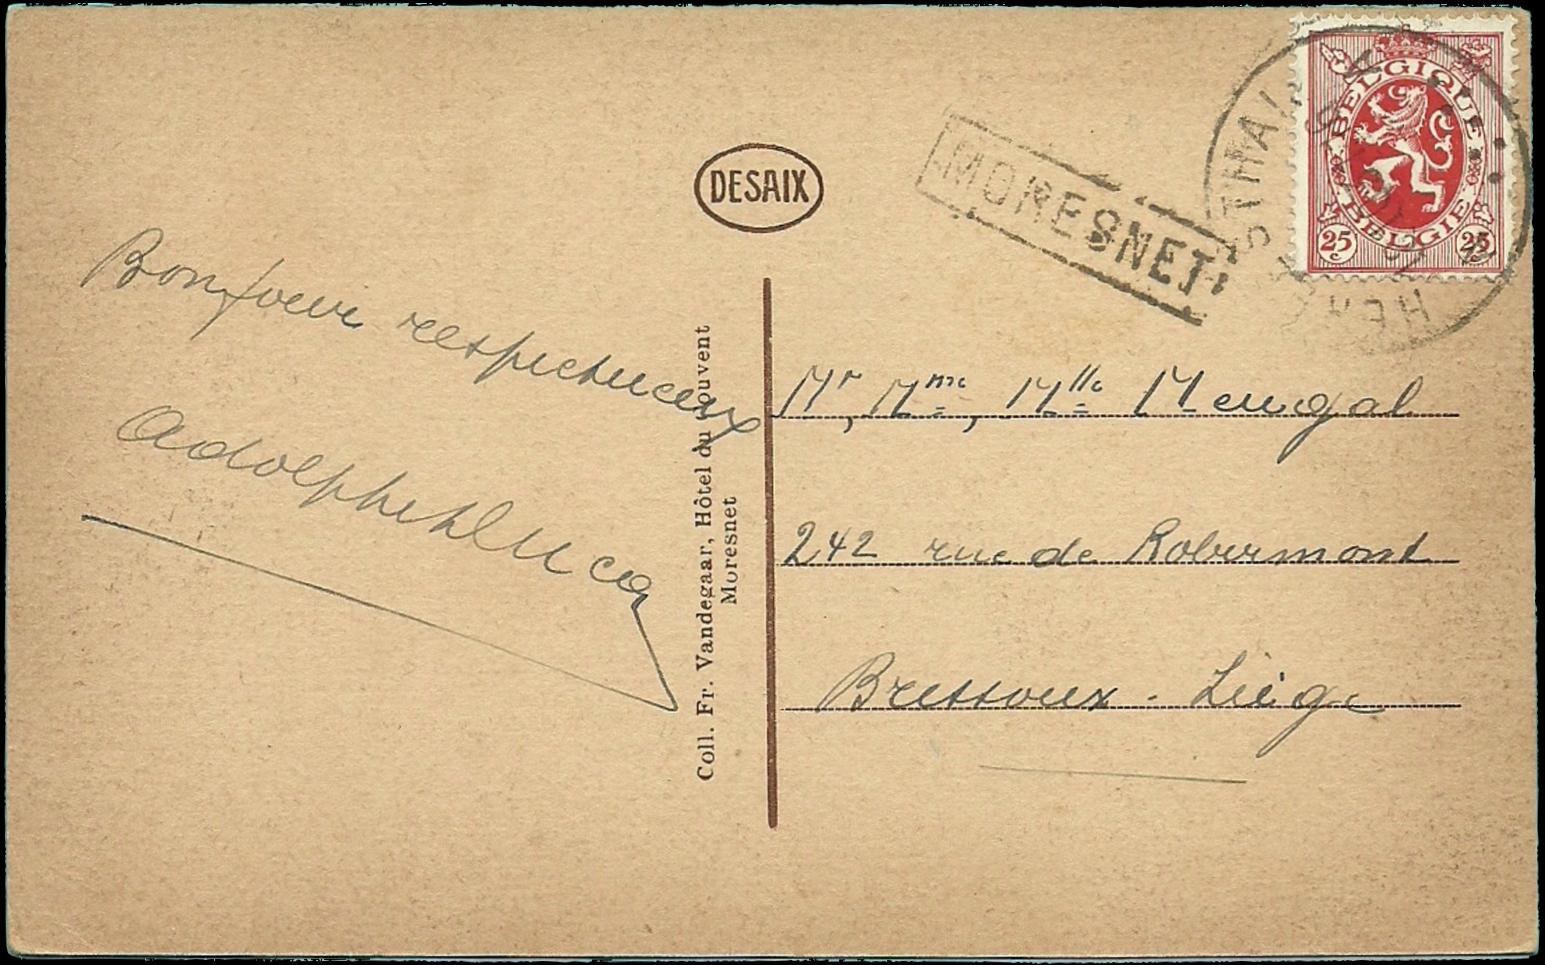 DESAIX
MORESNET
HERBESTHAL
BELGIQUE
BELGIË
25 25
Bonjour respectueux
Coll. Fr. Vandegaar, Hôtel du Couvent
Moresnet
Mr, Mme, Mlle Meugal
242 rue de Robermont
Bressoux - Liège